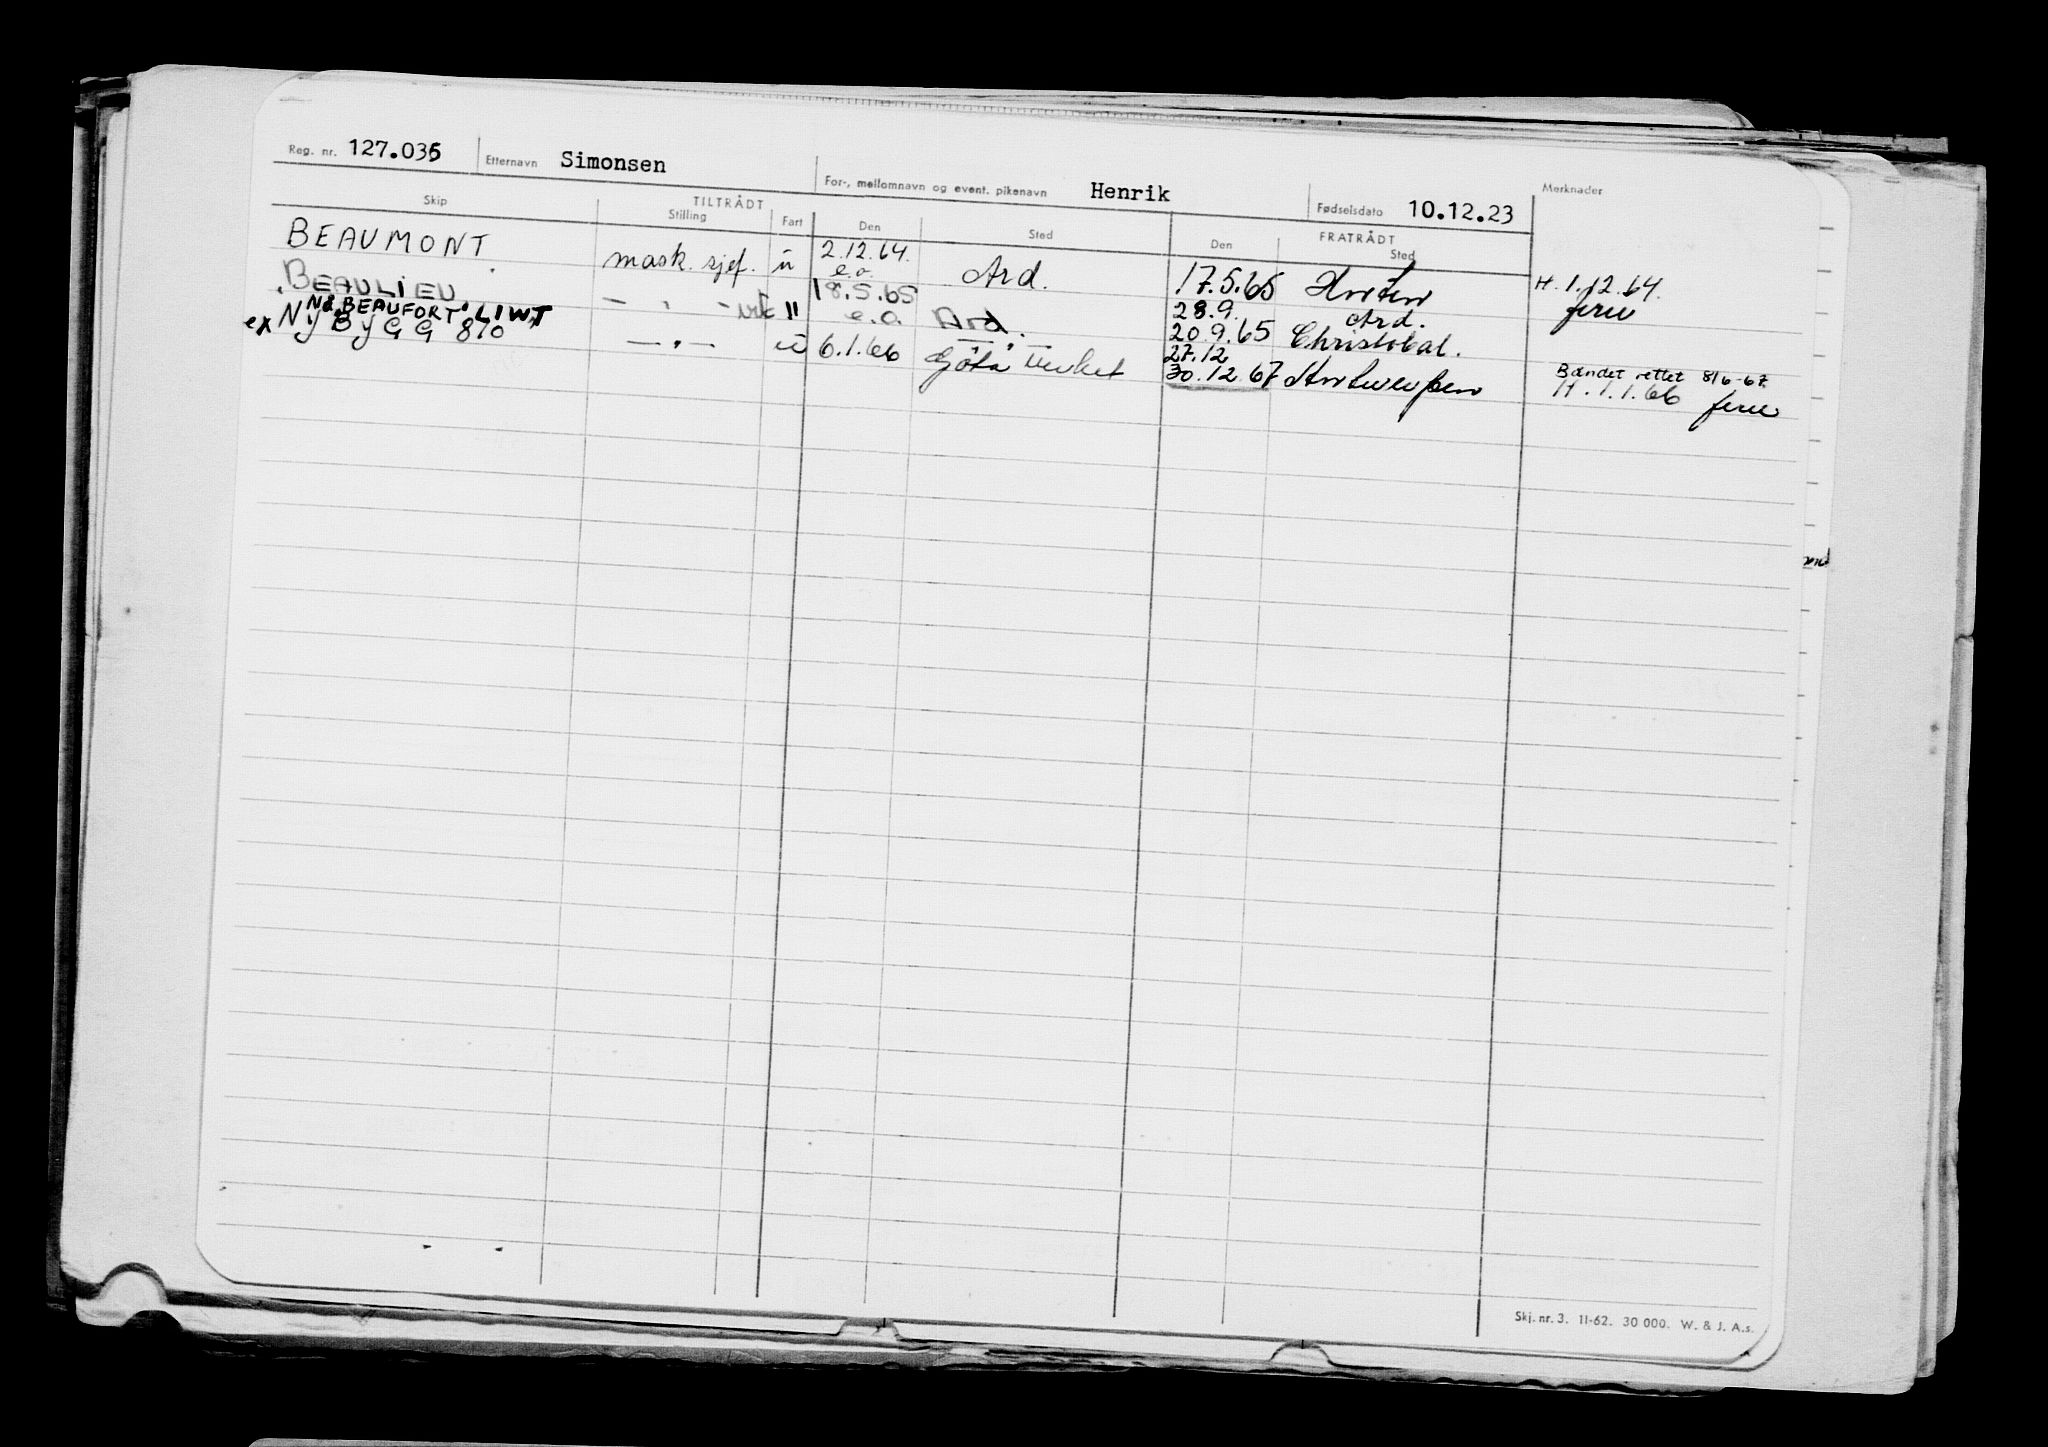 Reg. nr. 127.035 Etternavn Simonsen For-, mellomnavn og event. pikenavn Henrik Fødselsdato 10.12.23 Merknader
TILTRÅDT FRATRÅDT
Skip Stilling Fart Den Sted Den Sted
BEAUMONT mask. sjef. u 2.12.64. e.o. Ard. 17.5.65 H. 1.12.64. ferie
BEAULIEU — " — " 18.5.65 e.o. Ard. 28.9. Ard.
20.9.65 Christobal.
M/S "BEAUFORT" LIWT
ex NYBYGG 870 — " — u 6.1.66 Göta verket 27.12
30.12.67 Antwerpen
Bændet rettet 8/6-67
H. 1.1.66 ferie
Skj. nr. 3. 11-62. 30 000. W. & J. A.s.